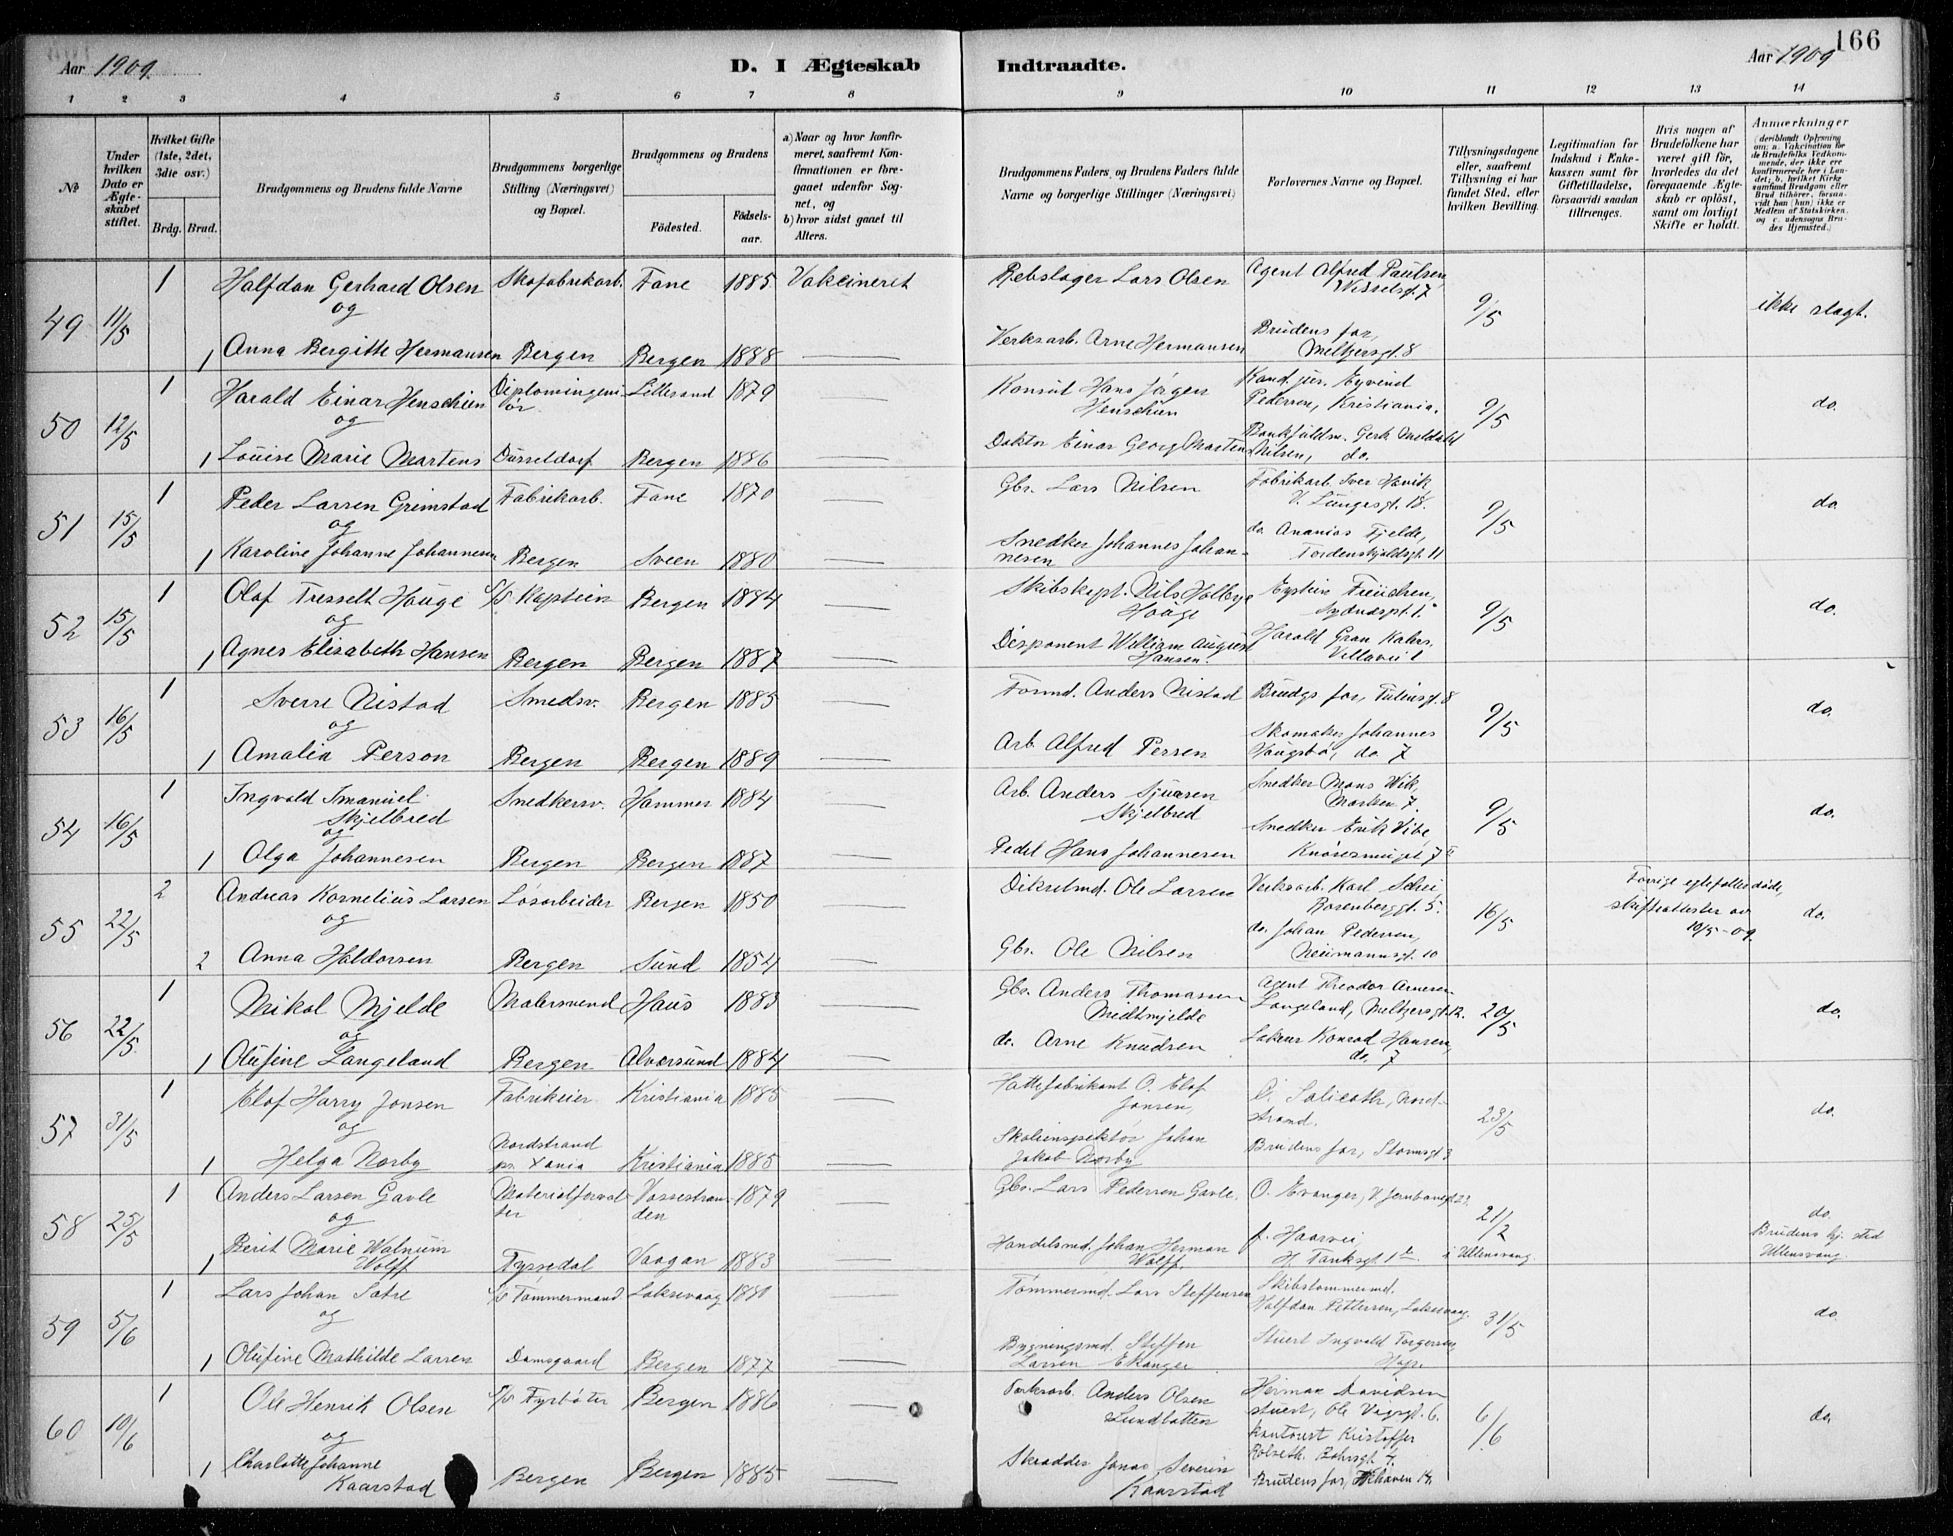 166
Aar 1909
D. I Ægteskab Indtraadte.
Aar 1909
1 2 3 4 5 6 7 8 9 10 11 12 13 14
No.
Under hvilken Dato er Ægteskabet stiftet.
Hvilket Gifte (1ste, 2det, 3die osv.)
Brdg. Brud.
Brudgommens og Brudens fulde Navne
Brudgommens borgerlige Stilling (Næringsvei) og Bopæl.
Brudgommens og Brudens
Fødested. Fødselsaar.
a) Naar og hvor konfirmeret, saafremt Konfirmationen er foregaaet udenfor Sognet, og
b) hvor sidst gaaet til Alters.
Brudgommens Faders, og Brudens Faders fulde Navne og borgerlige Stillinger (Næringsvei)
Forlovernes Navne og Bopæl.
Tillysningsdagene eller, saafremt Tillysning ei har fundet Sted, efter hvilken Bevilling.
Legitimation for Indskud i Enkekassen samt for Giftetilladelse, forsaavidt saadan tiltrænges.
Hvis nogen af Brudefolkene har været gift før, hvorledes da det foregaaende Ægteskab er opløst, samt om lovligt Skifte er holdt.
Anmerkninger
(deriblandt Oplysning om: a. Vakcination for de Brudefolks Vedkommende, der ikke ere konfirmerede her i Landet; b. hvilket Kirkesamfund Brudgom eller Brud tilhører, forsaavidt han (hun) ikke er Medlem af Statskirken, og c. udensogns Brudes Hjemsted.)
49 11/5 1 Halfdan Gerhard Olsen Skofabrikarb. Fane 1885 Vakcineret Rebslager Lars Olsen Agent Alfred Paulsen, Wesselsgt. 7 9/5 ikke slagt.
og
1 Anna Bergitte Hermansen Bergen Bergen 1888 Verksarb. Arne Hermansen Brudens far, Meltzersgt. 8
50 12/5 1 Harald Einar Henschien Diplomingeniør Lillesand 1879 Konsul Hans Jørgen Henschien Kand. jur. Eyvind Pedersen, Kristiania. 9/5 do.
og
1 Louise Marie Martens Düsseldorf Bergen 1886 Doktor Einar Georg Martens Bankfuldm. Gerh. Meldahl Nilsen, do.
51 15/5 1 Peder Larsen Grimstad Fabrikarb. Fane 1870 Gbr. Lars Nilsen Fabrikarb. Iver Høvik V. Lungesgt. 18. 9/5 do.
og
1 Karoline Johanne Johannesen Bergen Sveen 1880 Snedker Johannes Johannesen do. Ananias Fjelde, Tordenskjoldsgt. 11
52 15/5 1 Olaf Tresselt Hauge S/S Kaptein Bergen 1884 Skibskapt. Nils Holbye Hauge Eystein 9/5 do.
og
1 Agnes Elisabeth Hansen Bergen Bergen 1887 Disponent William August Hansen. Harald Gran Kahrs, Villavei 1
53 16/5 1 Sverre Nistad Smedsv. Bergen 1885 Formd. Anders Nistad Brudgs far, 8 9/5 do.
og
1 Amalia Person Bergen Bergen 1889 Arb. Alfred Persen Skomaker Johannes Haugsbø, do. 7
54 16/5 1 Ingvald Imanuel Skjelbred Snedkersv. Hammer 1884 Arb. Anders Sjursen Skjelbred Snedker Mons Wik, Marken 7. 9/5 do.
og
1 Olga Johannesen Bergen Bergen 1887 Pedel Hans Johannesen Snedker Erik Vibe 7
55 22/5 2 Andreas Kornelius Larsen Løsarbeider Bergen 1850 Dikselmd. Ole Larsen Verksarb. Karl Schei, Rosenberggt. 5. 16/5 Forrige egtefæller døde, skifteattester av 10/5-09. do.
og
2 Anna Haldorsen Bergen Sund 1854 Gbr. Ole Nilsen do. Johan Pedersen, Neumannsgt. 10
56 22/5 1 Nikol Mjelde Malersvend Haus 1883 Gbr. Anders Thomassen Midtmjelde Agent Theodor Arnesen Langeland, Meltzersgt. 12. 20/5 do.
og
1 Olufine Langeland Bergen Alversund 1884 do. Arne Knudsen Konrad Hansen, do. 7
57 31/5 1 Elof Harry Jonsen Fabrikeier Kristiania 1885 Hattefabrikant O. Elof Jonsen, Nordstrand. 23/5 do.
og
1 Helga Norby Nordstrand pr. Xania Kristiania 1885 Skoleinspektør Johan Jakob Norby Brudens far, 3
58 25/5 1 Anders Larsen Gavle Materialforvalter Vossestranden 1879 Gbr. Lars Pedersen Gavle. O. Evanger, V. Jernbanegt. 23 21/2 do.
og
1 Berit Marie Walnum Wolff Tyssedal Vaagan 1883 Handelsmd. Johan Herman Wolff f. Haarvei H. Tanksgt. 1 i Ullensvang. Brudens hj. sted Ullensvang.
59 5/6 1 Lars Johan Sætre S/S Tømmermand Laksevaag 1880 Tømmermd. Lars Steffensen Skibstømmermd. Halfdan Pettersen, Laksevaag. 31/5 do.
og
1 Olufine Mathilde Larsen Damsgaard Bergen 1877 Bygningsmd. Steffen Larsen Ekanger Stuert Ingvald Torgersen,
60 10/6 1 Ole Henrik Olsen S/S Fyrbøter Bergen 1886 Anders Olsen Herman Davidsen stuert, Ole Vigsgt. 6. 6/6 do.
og kontorist Kristoffer
1 Charlotte Johanne Kaarstad Bergen Bergen 1885 Skrædder Jonas Severin Kaarstad Brudens far,